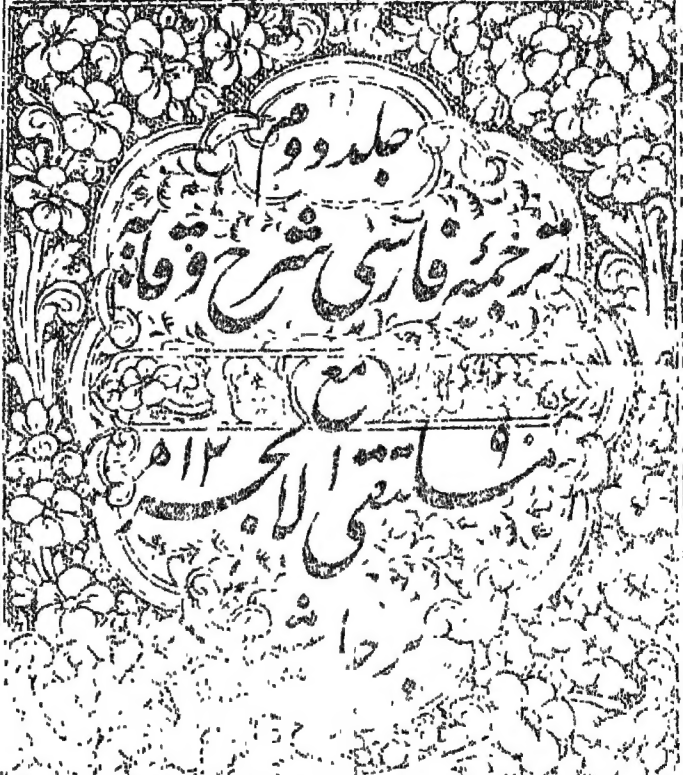 جلد دوم
ترجمهٔ فارسی شرح وقایه
مع
ملتقی الابحر
بر حاشیه